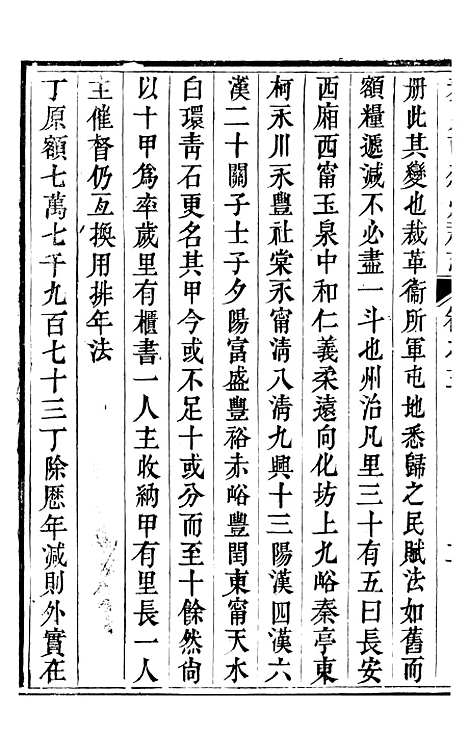 册此其變也裁革衞所軍屯地悉歸之民賦法如舊而
額糧遞減不必盡一斗也州治凡里三十有五曰長安
西廂西甯玉泉中和仁義柔遠向化坊上九峪秦亭東
柯永川永豐社棠永甯清八清九興十三陽漢四漢六
漢二十關子士子夕陽富盛豐裕赤峪豐閏東甯天水
白環青石更名其甲今或不足十或分而至十餘然尙
以十甲爲率歲里有櫃書一人主收納甲有里長一人
主催督仍互換用排年法
丁原額七萬七千九百七十三丁除歷年減則外實在